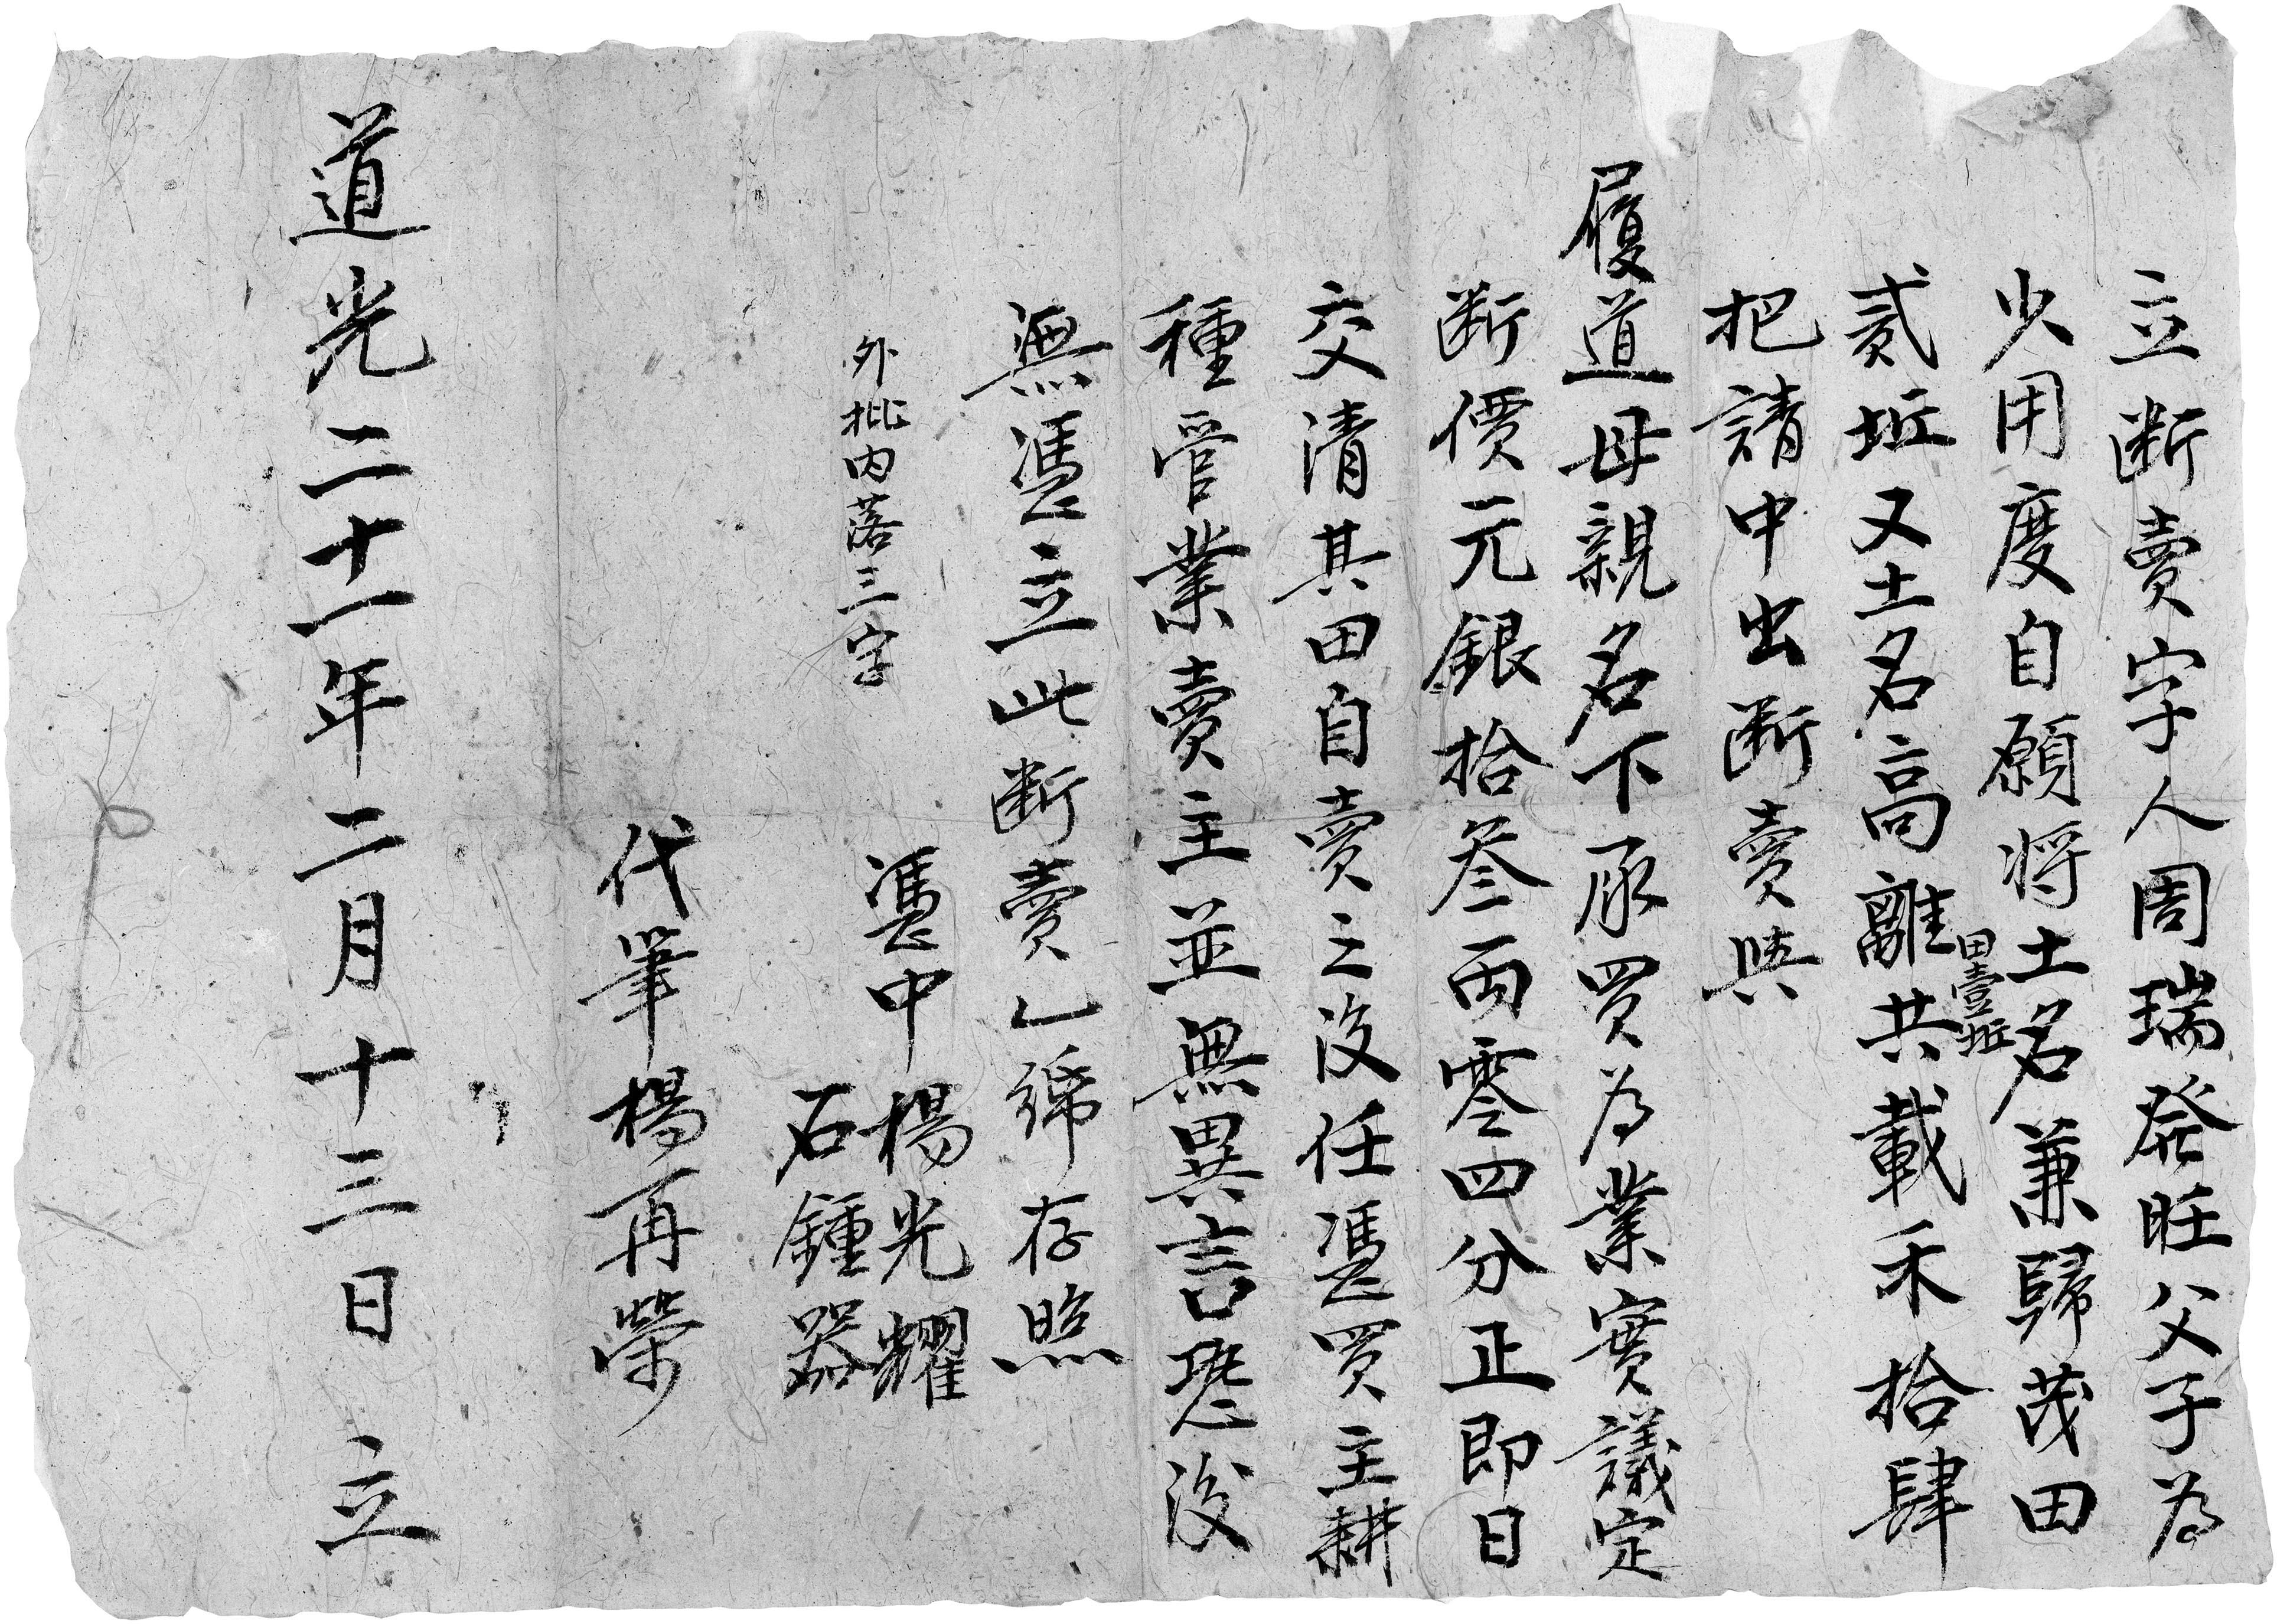 立断賣字人周瑞發旺父子為
少用度自願将土名兼歸茂田
貳坵又土名高離田壹坵共載禾拾肆
把請中出断賣與
履道母親名下承買為業實議定
断價元銀拾叁両零四分正即日
交清其田自賣之後任憑買主耕
種管業賣主並無異言恐後
無憑立此断賣乙㷌存照
外批内落三字
憑中楊光耀
石鍾器
代筆楊再榮
道光二十一年二月十三日 立